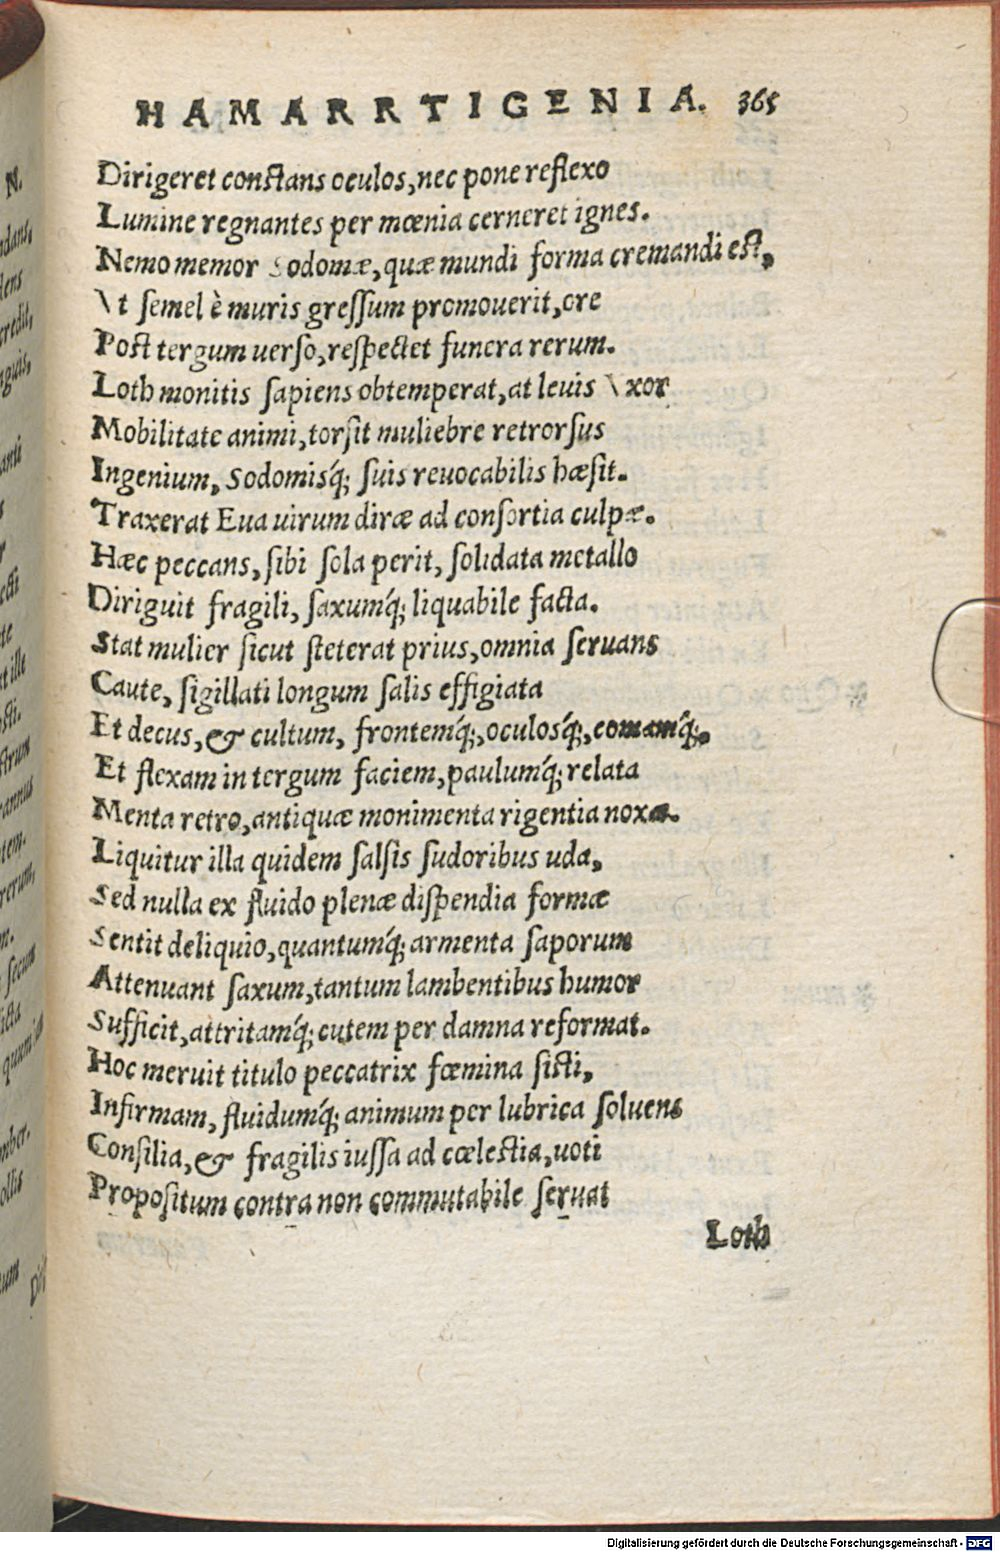 HAMARRTIGENIA. 365
Dirigeret constans oculos, nec pone reflexo
Lumine regnantes per mœnia cerneret ignes.
Nemo memor Sodomæ, quæ mundi forma cremandi est,
Vt semel è muris gressum promouerit, ore
Post tergum uerso, respectet funera rerum.
Loth monitis sapiens obtemperat, at leuis Vxor
Mobilitate animi, torsit muliebre retrorsus
Ingenium, Sodomisq́; suis reuocabilis hæsit.
Traxerat Eua uirum diræ ad consortia culpæ.
Hæc peccans, sibi sola perit, solidata metallo
Diriguit fragili, saxumq́; liquabile facta.
Stat mulier sicut steterat prius, omnia seruans
Caute, sigillati longum salis effigiata
Et decus, & cultum, frontemq́;, oculosq́;, comamq́;.
Et flexam in tergum faciem, paulumq́; relata
Menta retro, antiquæ monimenta rigentia noxæ.
Liquitur illa quidem salsis sudoribus uda,
Sed nulla ex fluido plenæ dispendia formæ
Sentit deliquio, quantumq́; armenta saporum
Attenuant saxum, tantum lambentibus humor
Sufficit, attritamq́; cutem per damna reformat.
Hoc meruit titulo peccatrix fœmina sisti,
Infirmam, fluidumq́; animum per lubrica soluens
Consilia, & fragilis iussa ad cœlestia, uoti
Propositum contra non commutabile seruat
Loth
Digitalisierung gefördert durch die Deutsche Forschungsgemeinschaft - DFG